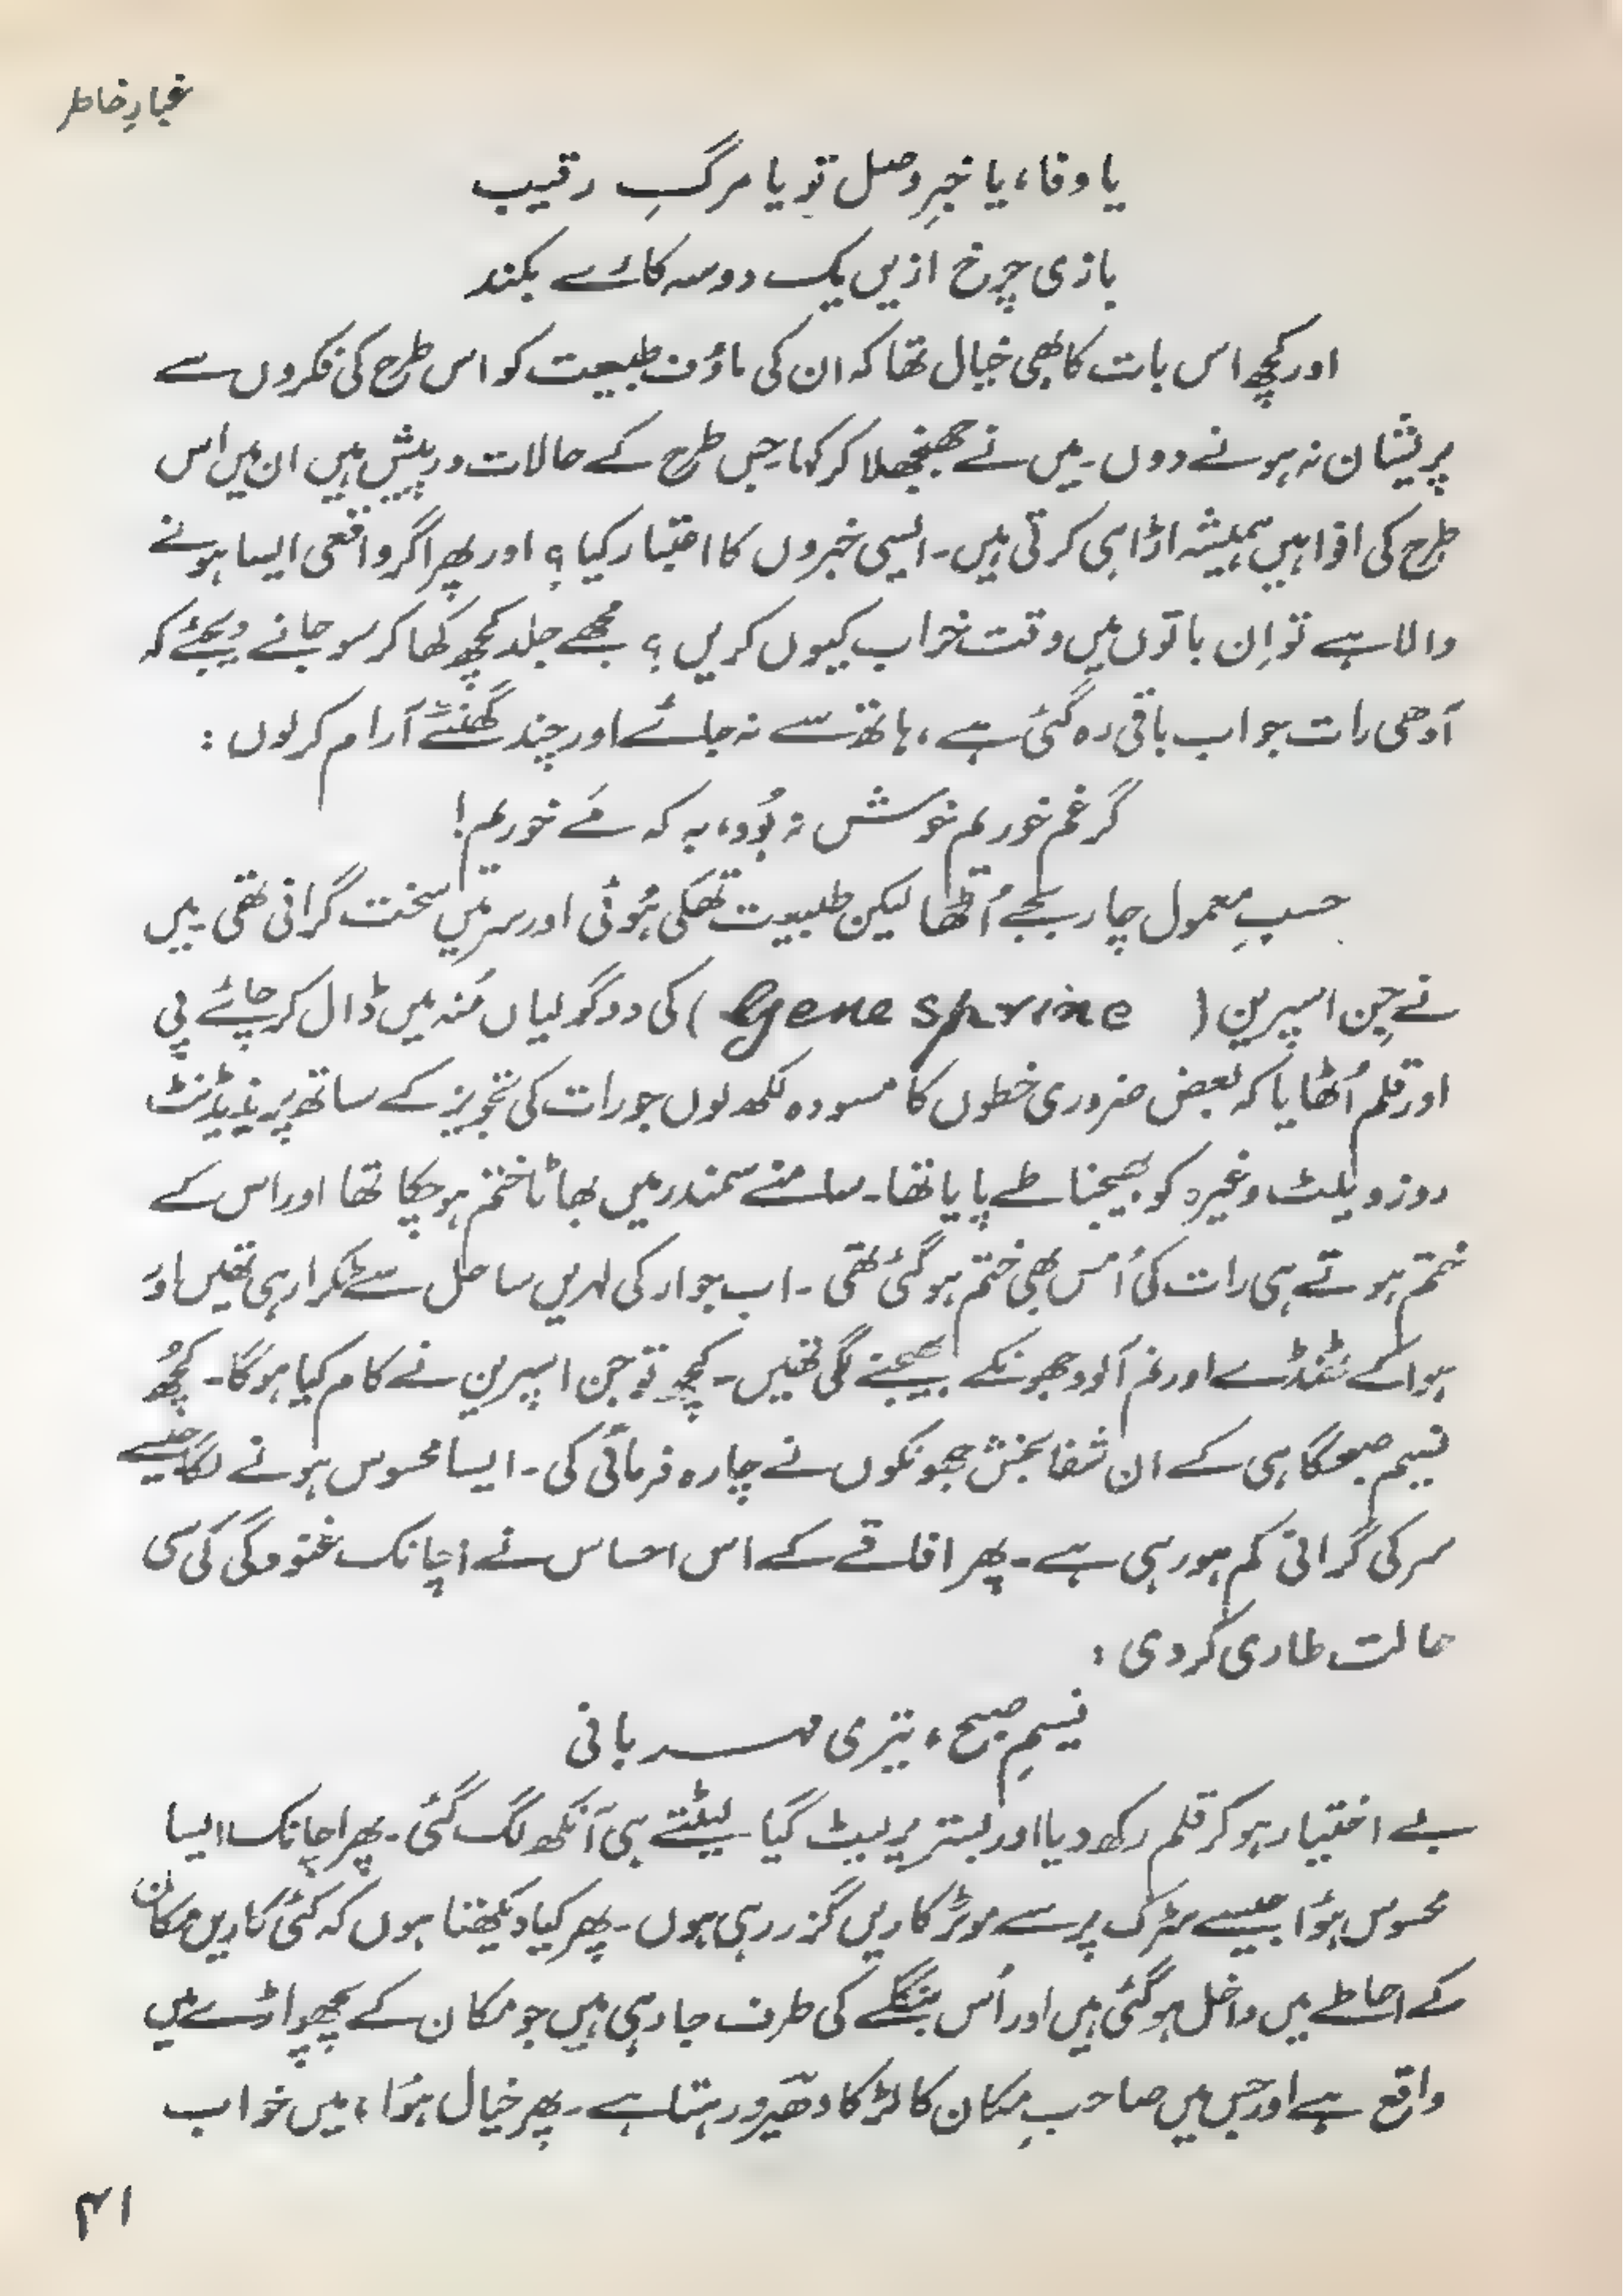 غبارِ خاطر
یا وفا، یا خبرِ وصل تو یا مرگِ رقیب
بازی چرخ ازیں یک دو سہ کارے بکند
اور کچھ اس بات کا بھی خیال تھا کہ ان کی ماؤف طبیعت کو اس طرح کی فکروں سے
پریشان نہ ہونے دوں۔ میں نے جھنجھلا کر کہا۔ جس طرح کے حالات درپیش ہیں ان میں اس
طرح کی افواہیں ہمیشہ اڑا ہی کرتی ہیں۔ ایسی خبروں کا اعتبار کیا؟ اور پھر اگر واقعی ایسا ہونے
والا ہے تو اِن باتوں میں وقت خراب کیوں کریں؟ مجھے جلد کچھ کھا کر سو جانے دیجئے کہ
آدھی رات جو اب باقی رہ گئی ہے، ہاتھ سے نہ جائے اور چند گھنٹے آرام کر لوں:
گر غم خوریم خوش نہ بُوَد، بہ کہ مَے خوریم!
حسبِ معمول چار بجے اُٹھا لیکن طبیعت تھکی ہُوئی اور سر میں سخت گرانی تھی۔ میں
نے جِن اسپرین (Gene sprine) کی دو گولیاں مُنہ میں ڈال کر چائے پی
اور قلم اُٹھایا کہ بعض ضروری خطوں کا مسودہ لکھ لوں جو رات کی تجویز کے ساتھ پریذیڈنٹ
روزویلٹ وغیرہ کو بھیجنا طے پایا تھا۔ سامنے سمندر میں بھاٹا ختم ہو چکا تھا اور اس کے
ختم ہوتے ہی رات کی اُمس بھی ختم ہو گئی تھی۔ اب جوار کی لہریں ساحل سے ٹکرا رہی تھیں اور
ہوا کے ٹھنڈے اور نم آلود جھونکے بھیجنے لگی تھیں۔ کچھ تو جن اسپرین نے کام کیا ہوگا۔ کچھ
نسیم صبحگاہی کے ان شفا بخش جھونکوں نے چارہ فرمائی کی۔ ایسا محسوس ہونے لگا جیسے
سر کی گرانی کم ہو رہی ہے۔ پھر افاقے کے اس احساس نے اچانک غنودگی کی سی
حالت طاری کر دی:
نسیمِ صبح، تیری مہربانی
بے اختیار ہو کر قلم رکھ دیا اور بستر پر لیٹ گیا۔ لیٹتے ہی آنکھ لگ گئی۔ پھر اچانک ایسا
محسوس ہُوا جیسے سڑک پر سے موٹر کاریں گزر رہی ہوں۔ پھر کیا دیکھتا ہوں کہ کئی کاریں مکان
کے احاطے میں داخل ہو گئی ہیں اور اُس بنگلے کی طرف جا رہی ہیں جو مکان کے پچھواڑے میں
واقع ہے اور جس میں صاحبِ مکان کا لڑکا دھیرو رہتا ہے۔ پھر خیال ہُوا، میں خواب
۴۱